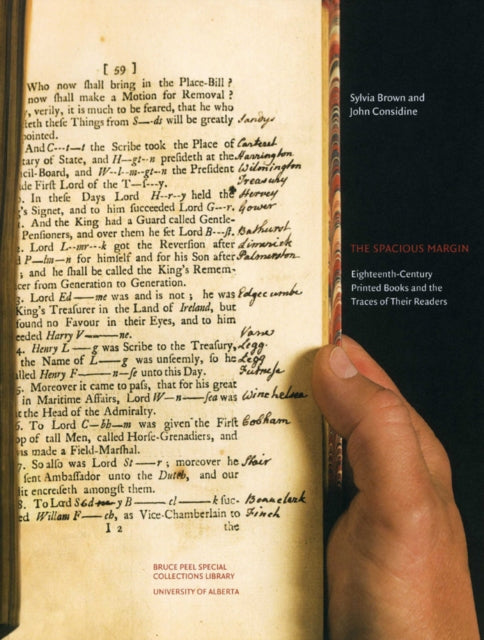 [ 59 ]
Who now ſhall bring in the Place-Bill ?
now ſhall make a Motion for Removal ?
, verily, it is much to be feared, that he who
teth theſe Things from S—ds will be greatly Sandys
pointed.
And C---t—t the Scribe took the Place of Carteret
tary of State, and H—gt--n preſideth at the Harrington
cil-Board, and W--l-m-gt--n the Preſident Wilmington
de Firſt Lord of the T—ſ---y. Treasury
. In theſe Days Lord H--r--y held the Hervey
's Signet, and to him ſucceeded Lord G---r. Gower
. And the King had a Guard called Gentle-
Penſioners, and over them he ſet Lord B---ſt. Bathurst
. Lord L--mr---k got the Reverſion after Limerick
d P—lm—n for himſelf and for his Son after Palmerston
; and he ſhall be called the King's Remem-
cer from Generation to Generation.
3. Lord Ed——me was and is not ; he was Edgecumbe
King's Treaſurer in the Land of Ireland, but
found no Favour in their Eyes, and to him
eeded Harry V———ne. Vane
4. Henry L—g was Scribe to the Treaſury, Legg.
the Name of L——g was unſeemly, ſo he Legg
lled Henry F———n--ſe unto this Day. Furnese
5. Moreover it came to paſs, that for his great
in Maritime Affairs, Lord W—n—ſea was Winchelsea
t the Head of the Admiralty.
6. To Lord C—bh—m was given the Firſt Cobham
op of tall Men, called Horſe-Grenadiers, and
as made a Field-Marſhal.
7. So alſo was Lord St——r ; moreover he Stair
ſent Ambaſſador unto the Dutch, and our
dit encreſeth amongſt them.
8. To Lord S y B—— cl ——k ſuc- Beauclerk
ed Willam F——ch, as Vice-Chamberlain to Finch
I 2 the
Sylvia Brown and
John Considine
THE SPACIOUS MARGIN
Eighteenth-Century
Printed Books and the
Traces of Their Readers
BRUCE PEEL SPECIAL
COLLECTIONS LIBRARY
UNIVERSITY OF ALBERTA